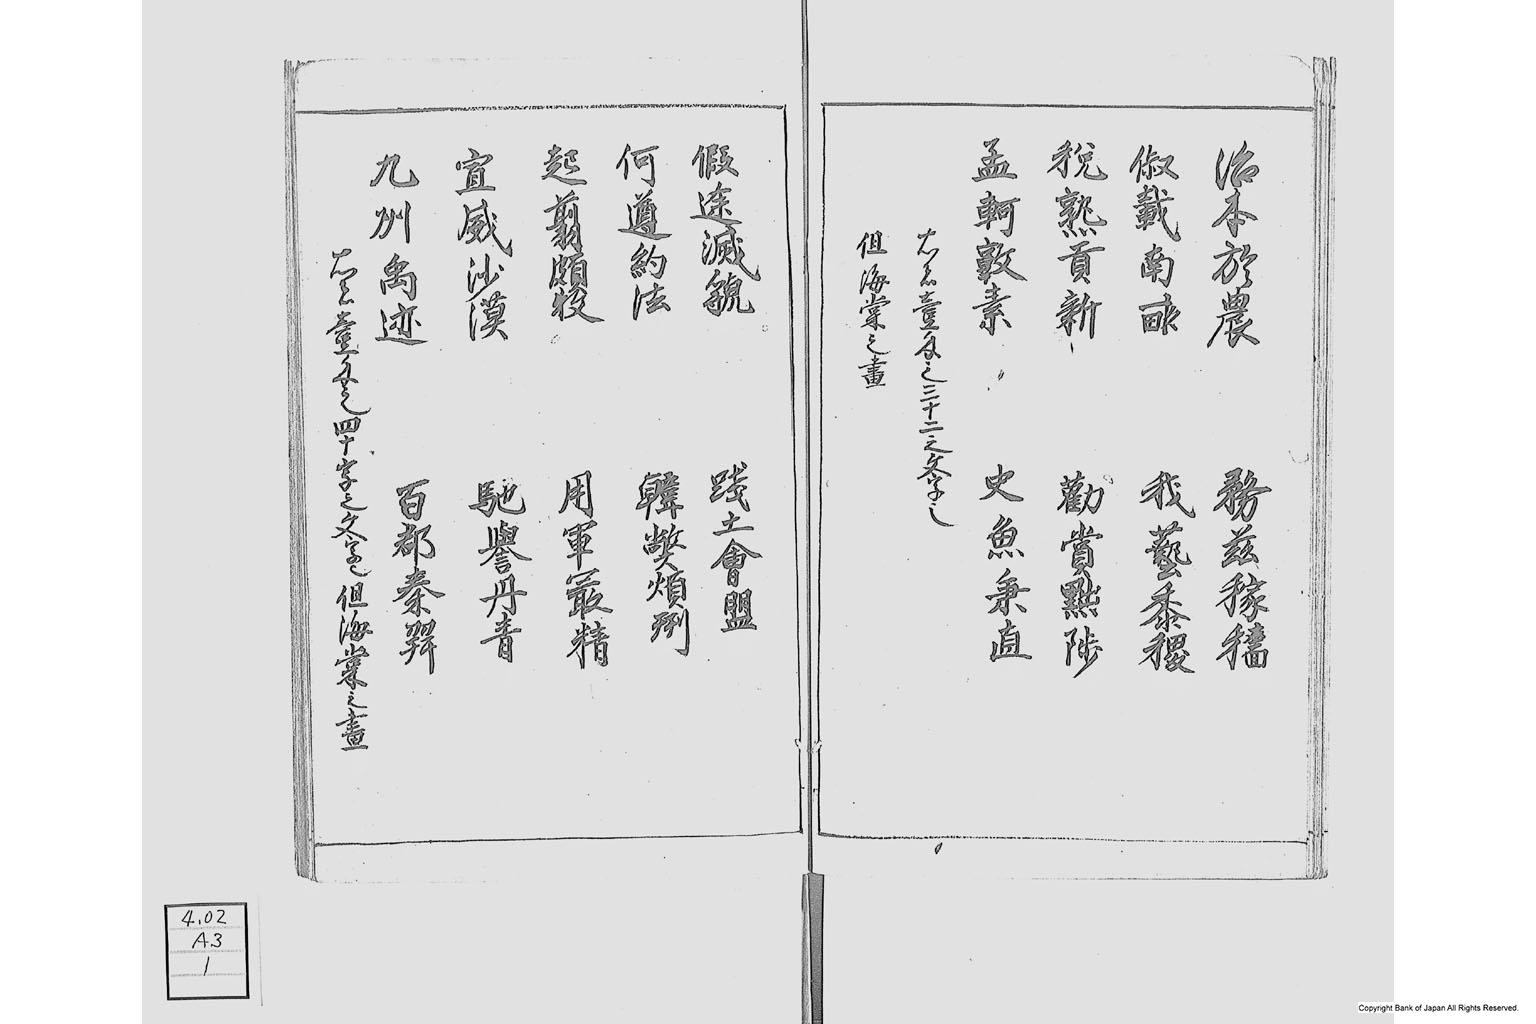 治本於農 務茲稼穡
俶載南畝 我藝黍稷
稅熟貢新 勸賞黜陟
孟軻敦素 史魚秉直
右者壹匁之三十二之文字也
但海棠之畫
假途滅虢 踐土會盟
何遵約法 韓弊煩刑
起翦頗牧 用軍最精
宣威沙漠 馳譽丹青
九州禹迹 百郡秦并
右者壹匁之四十字之文字也 但海棠之畫
4.02
A3
1
Copyright Bank of Japan All Rights Reserved.